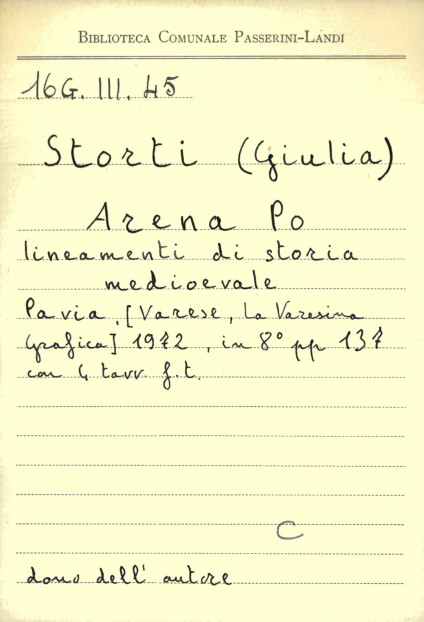 BIBLIOTECA COMUNALE PASSERINI-LANDI
16G. III. 45
Storti (Giulia)
Arena Po
lineamenti di storia
medioevale
Pavia, [Varese, La Varesina
Grafica] 1972, in 8° pp 137
con 4 tavv. f.t.
C
dono dell'autore